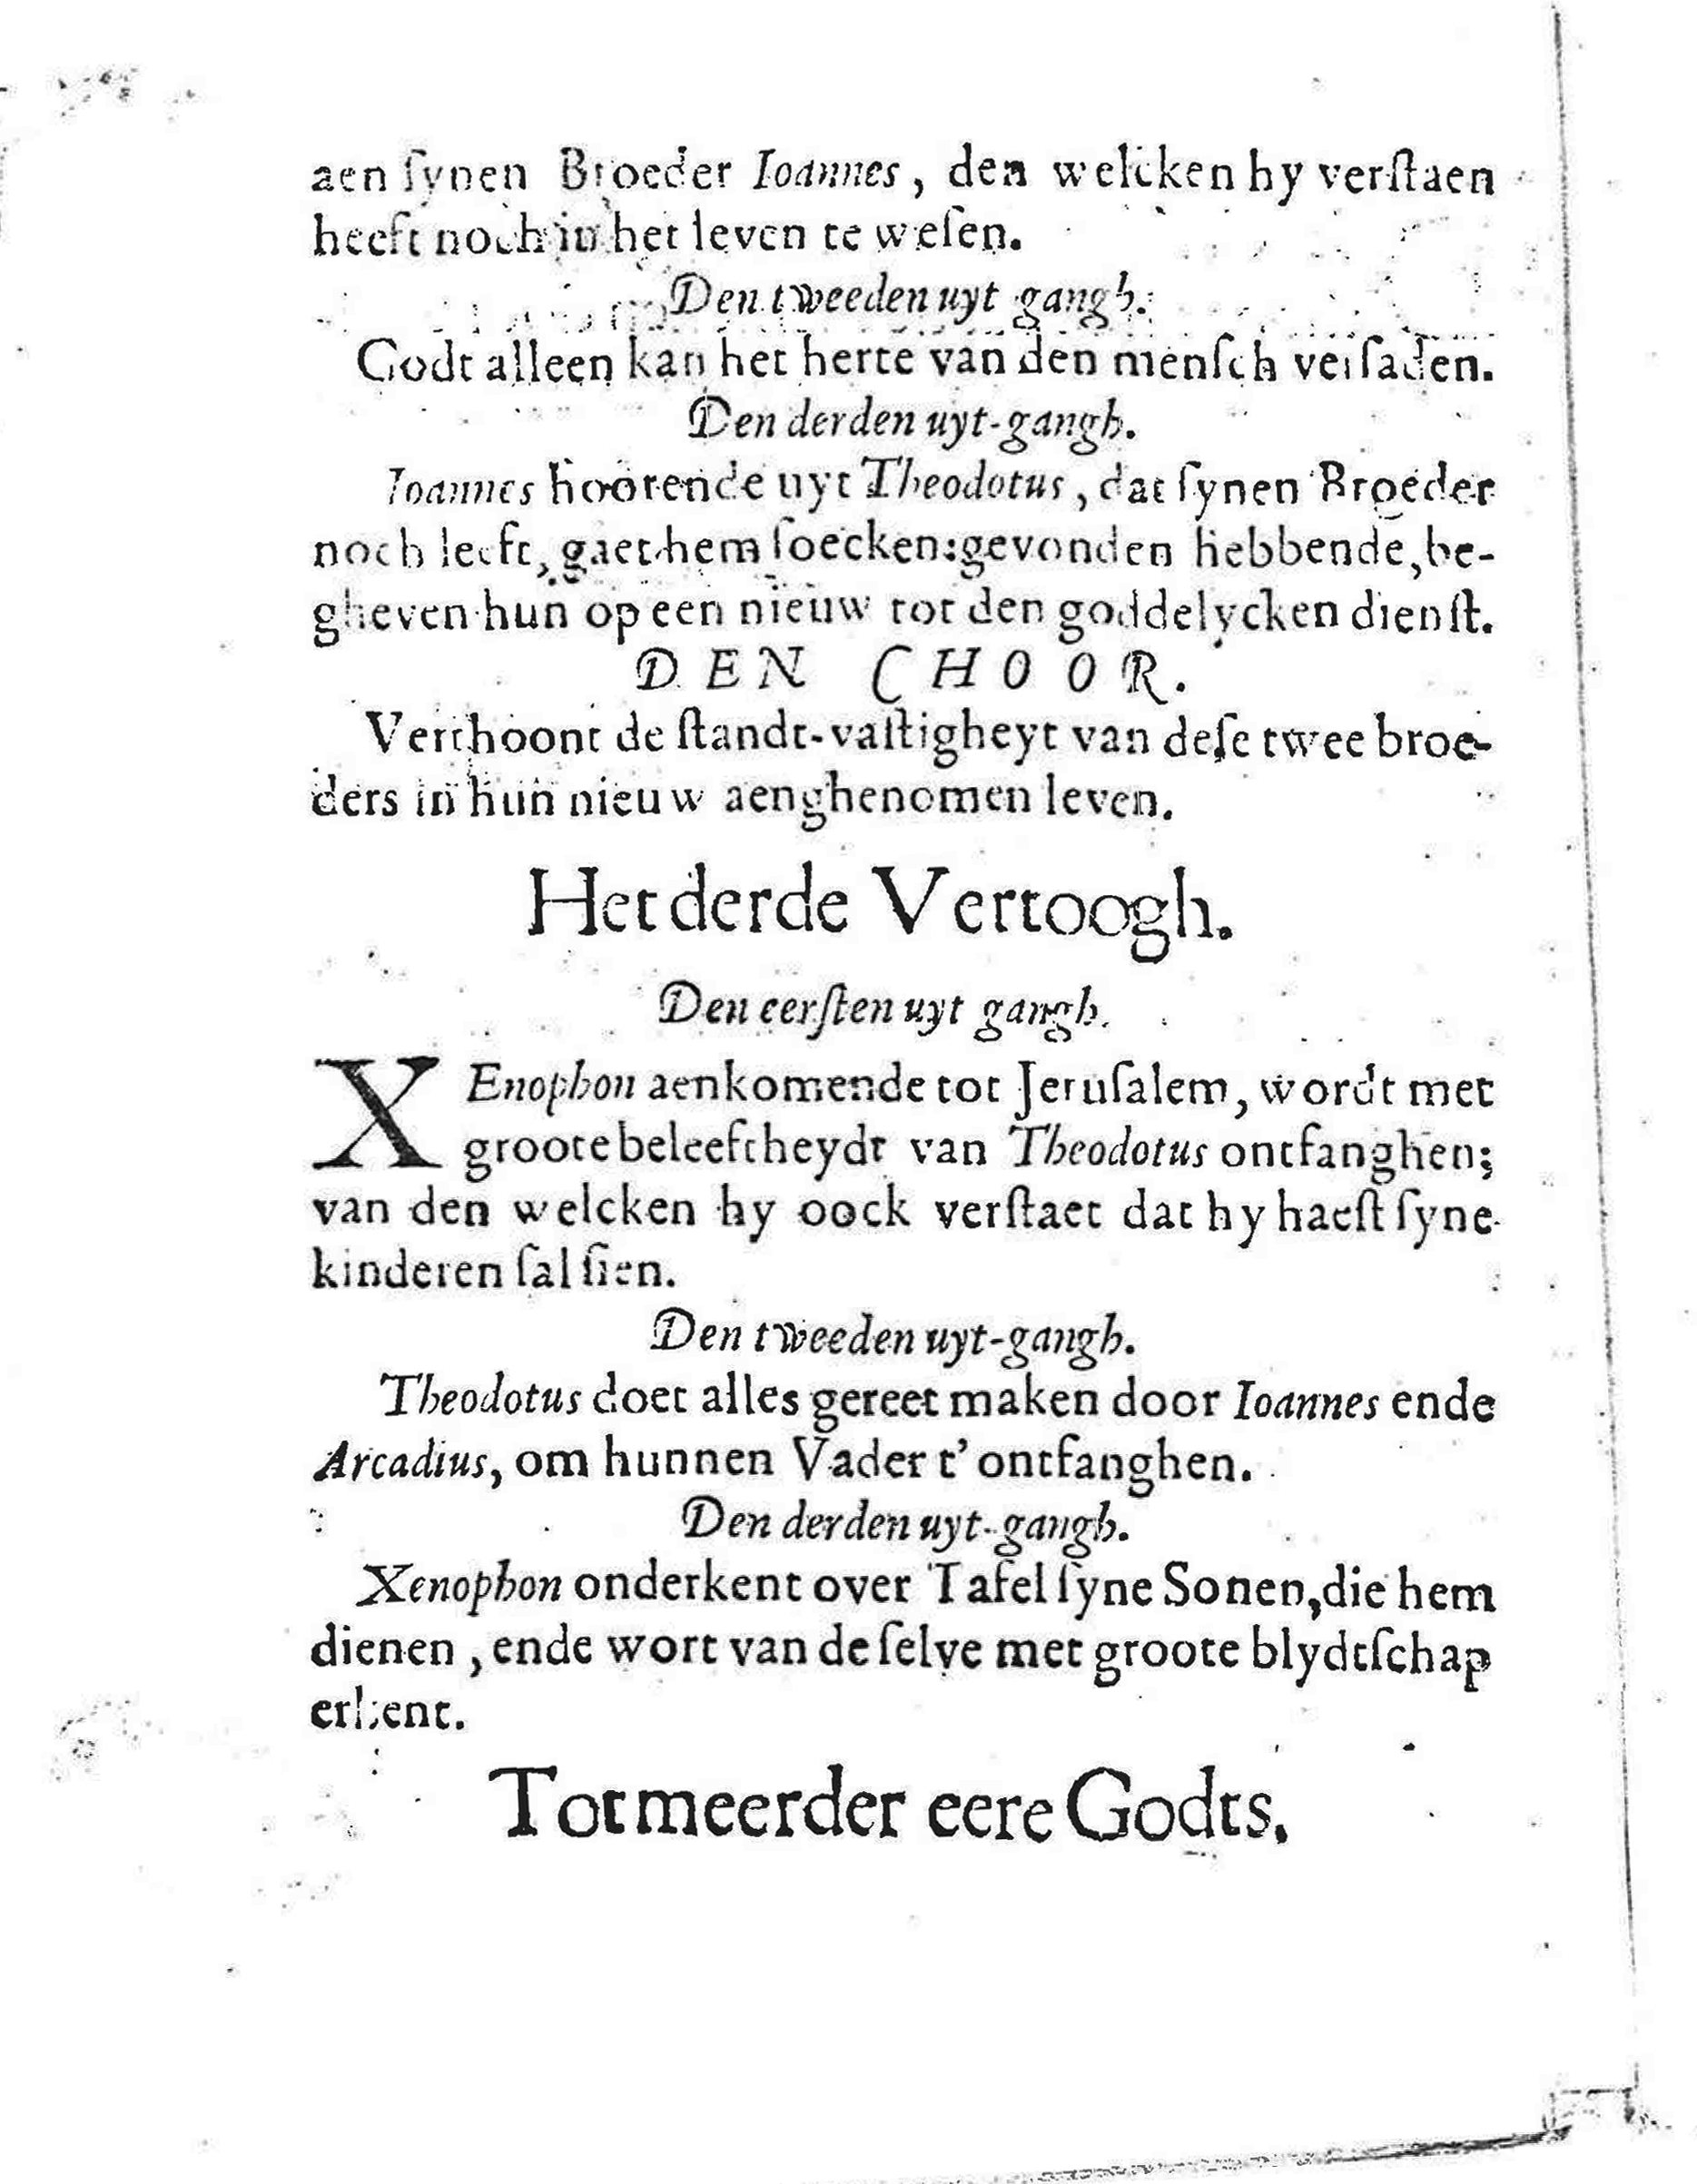 aen ſynen Broeder Ioannes, den welcken hy verſtaen
heeft noch in het leven te weſen.
Den tweeden uyt gangh.
Godt alleen kan het herte van den menſch verſaden.
Den derden uyt-gangh.
Ioannes hoorende uyt Theodotus, dat ſynen Broeder
noch leeft, gaet hem ſoecken: gevonden hebbende, be-
gheven hun op een nieuw tot den goddelycken dienſt.
DEN CHOOR.
Verthoont de ſtandt-vaſtigheyt van deſe twee broe-
ders in hun nieuw aenghenomen leven.
Het derde Vertoogh.
Den eerſten uyt gangh.
XEnophon aenkomende tot Jeruſalem, wordt met
groote beleeftheydt van Theodotus ontfanghen;
van den welcken hy oock verſtaet dat hy haeſt ſyne
kinderen ſal ſien.
Den tweeden uyt-gangh.
Theodotus doet alles gereet maken door Ioannes ende
Arcadius, om hunnen Vader t' ontfanghen.
Den derden uyt-gangh.
Xenophon onderkent over Tafel ſyne Sonen, die hem
dienen, ende wort van de ſelve met groote blydtſchap
erkent.
Tot meerder eere Godts.